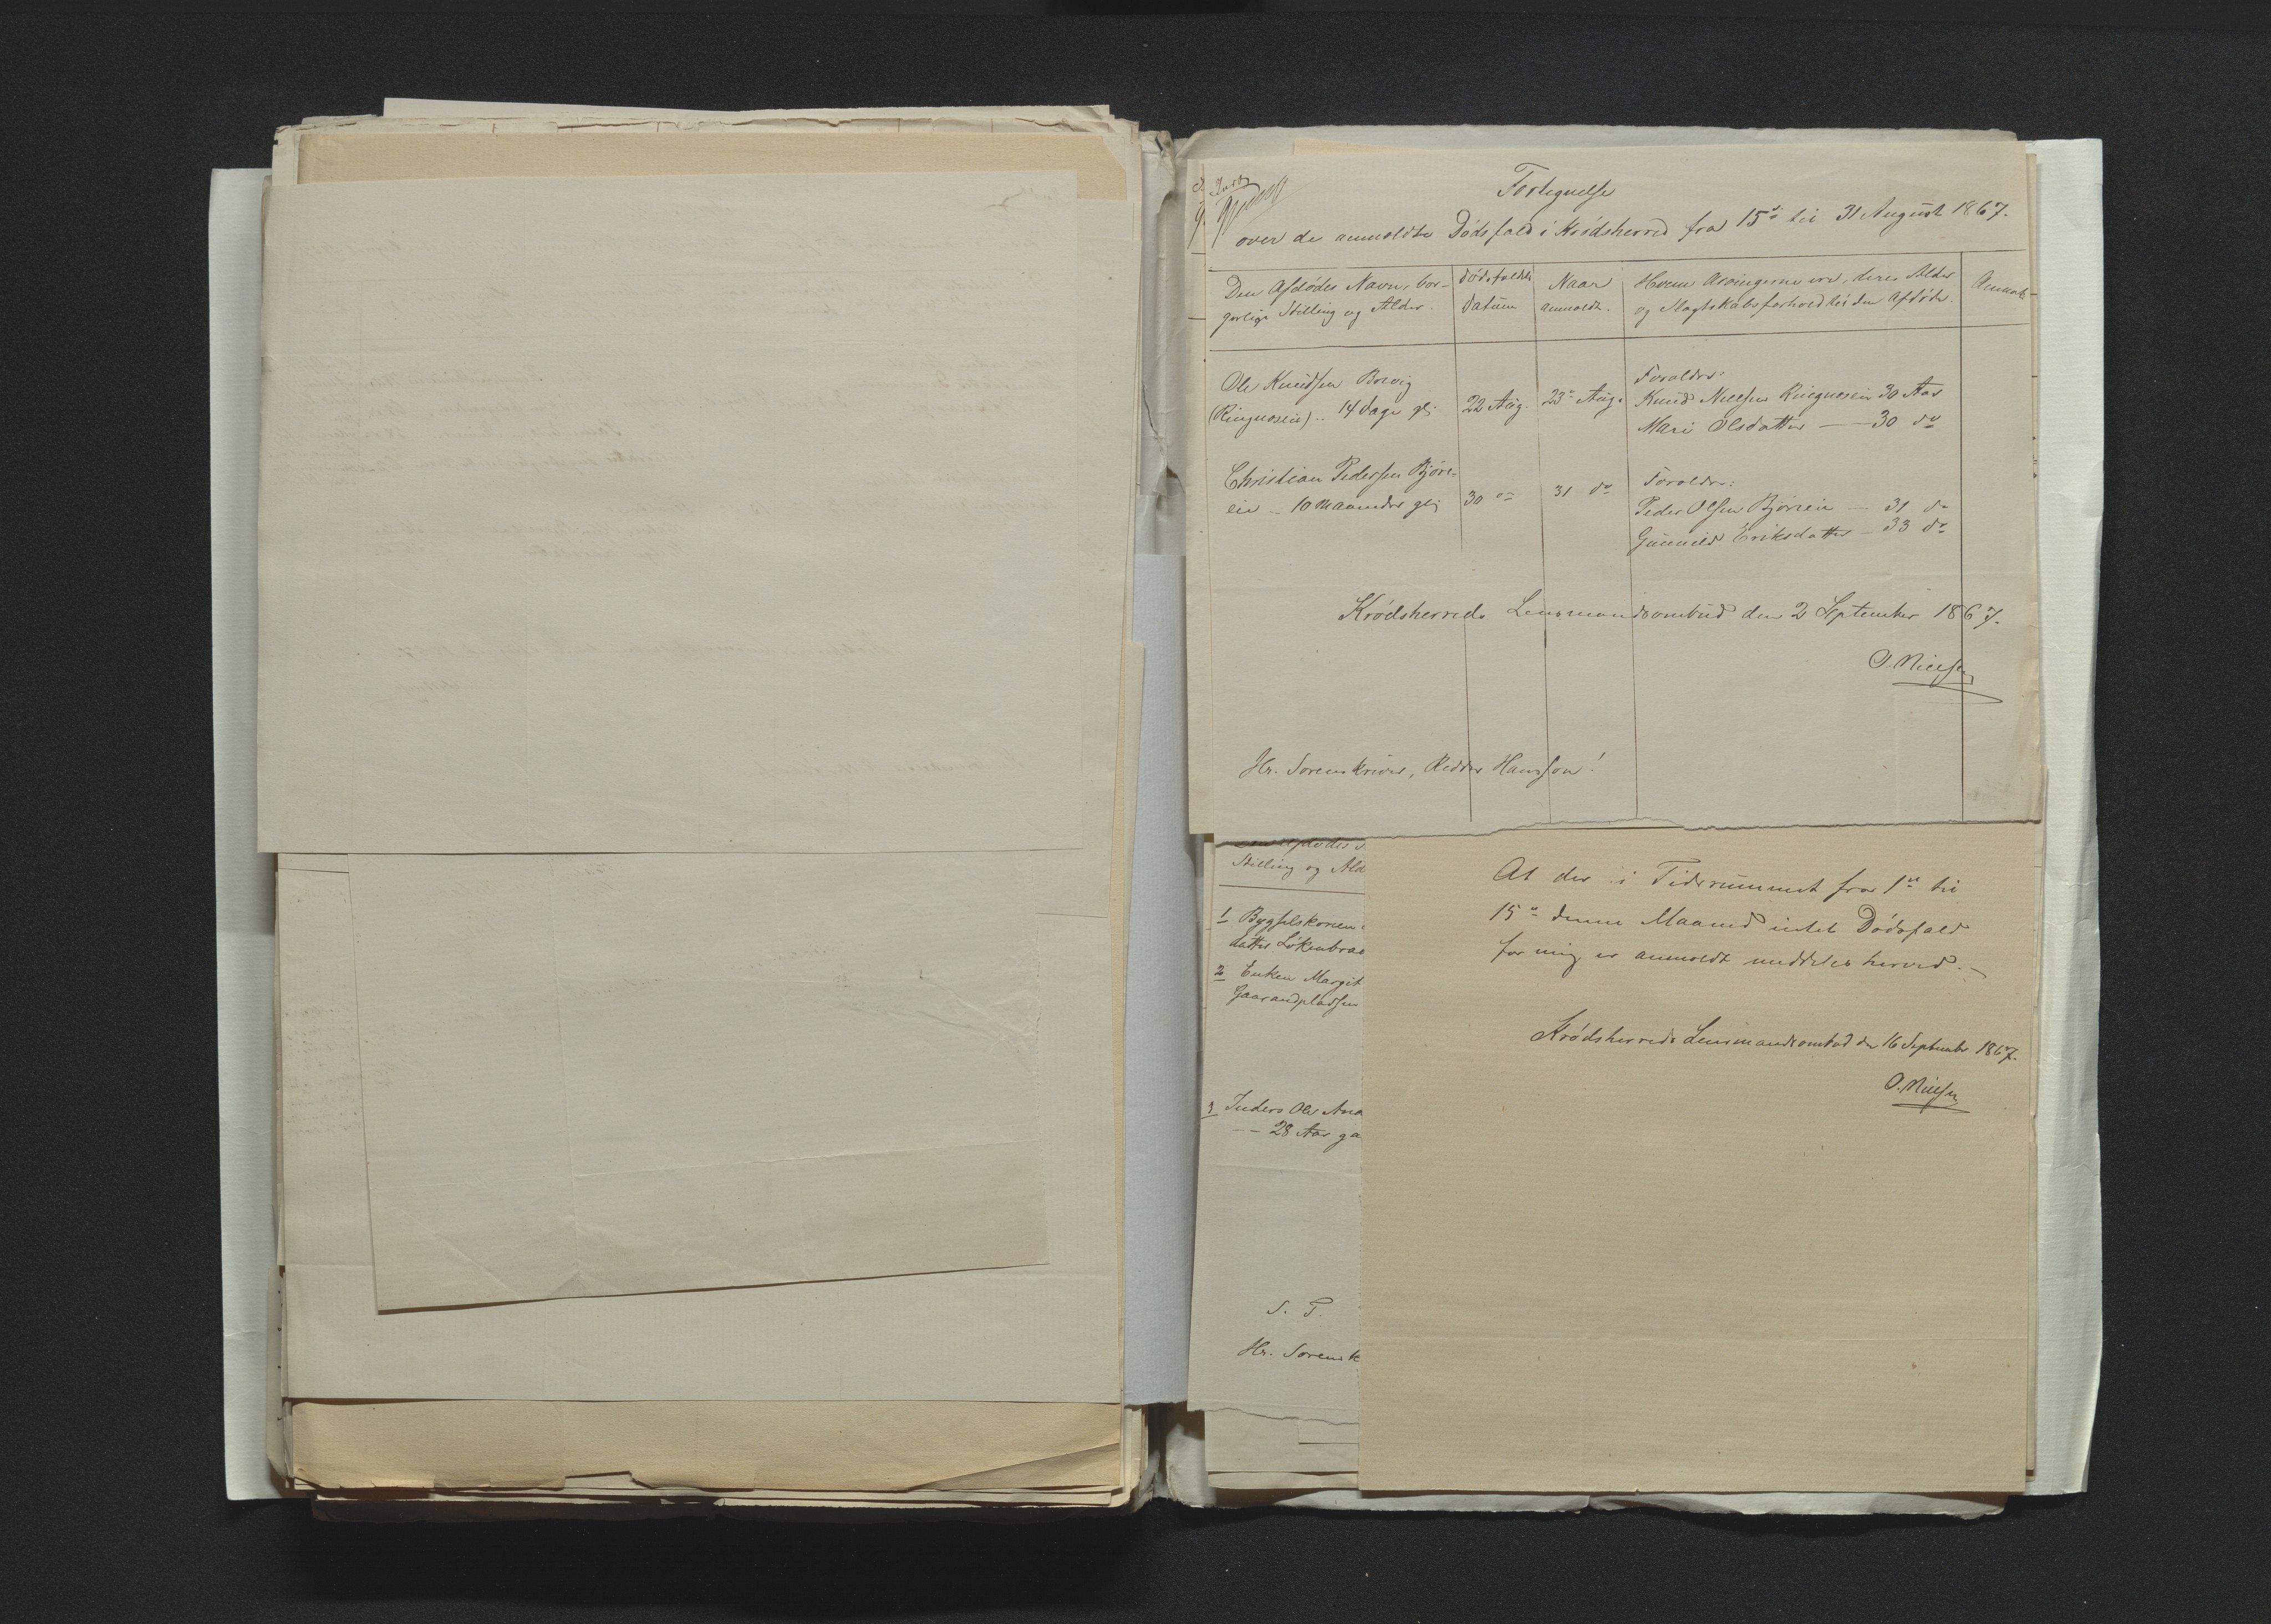 Fortegnelse
over de anmeldte Dødsfald i Krødsherred fra 15de til 31 August 1867.
Den Afdødes Navn, bor-
gerlige Stilling og Alder.
Dødsfaldets
Datum
Naar
anmeldt.
Hvem Arvingerne ere, deres Alder
og Slægtskabsforhold til den Afdøde.
Anmæk-
Ole Knudsen Borvig
(Ringnesein) .. 14 dage gl;
22 Aug.
23de Aug.
Forældre:
Knud Nielsen Ringnesein 30 Aar
Mari Olsdatter — 30 do
Christian Pedersen Bjøre-
ein — 10 Maaneder gl;
30 do
31 do
Forældre:
Peder Olsen Bjørein — 31 do
Gunnild Eriksdatter — 33 do
Krødsherreds Lensmandsombud den 2 September 1867.
O. Nielsen
Hr. Sorenskriver, Ridder Hansson!
Stilling og Ald
1 Bygselskonen
datter Løkenbraa
2 Enken Margit
Gaarandpladsen
3 Inders Ole And
-- 28 Aar ga
S. T.
Hr. Sorensk
At der i Tidsrummet fra 1ste til
15de denne Maaned intet Dødsfald
for mig er anmeldt meddeles herved. —
Krødsherreds Lensmandsombud den 16 September 1867.
O. Nielsen